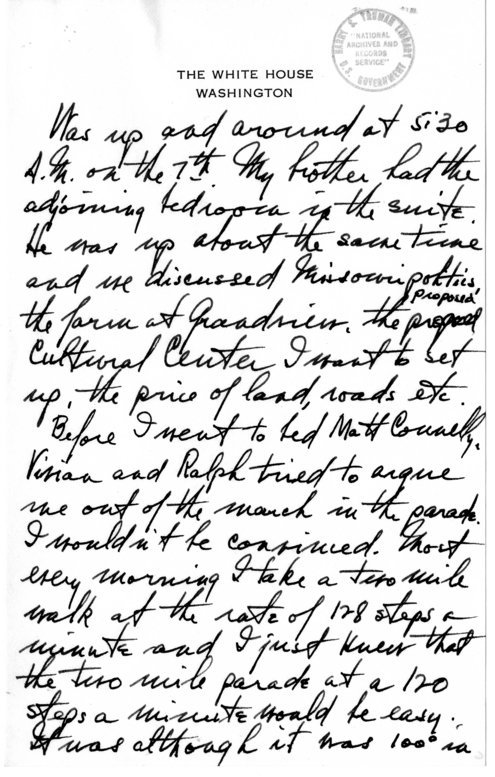 HARRY S. TRUMAN LIBRARY
"NATIONAL
ARCHIVES AND
RECORDS
SERVICE"
U.S. GOVERNMENT
THE WHITE HOUSE
WASHINGTON
Was up and around at 5:30
A.M. on the 7th. My brother had the
adjoining bedroom in the suite.
He was up about the same time
and we discussed Missouri politics,
proposed
the farm at Grandview, the
Cultural Center I want to set
up, the price of land, roads etc.
Before I went to bed Matt Connelly,
Vivian and Ralph tried to argue
me out of the march in the parade.
I wouldn't be convinced. Most
every morning I take a two mile
walk at the rate of 128 steps a
minute and I just knew that
the two mile parade at a 120
steps a minute would be easy.
It was although it was 100° in